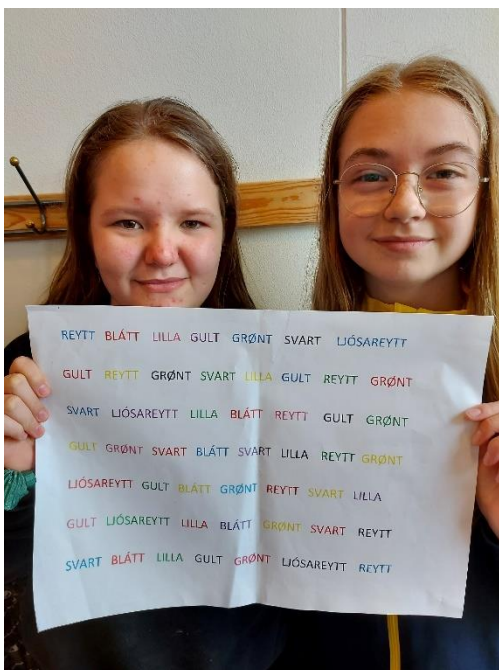 REYTT BLÁTT LILLA GULT GRØNT SVART LJÓSAREYTT
GULT REYTT GRØNT SVART LILLA GULT REYTT GRØNT
SVART LJÓSAREYTT LILLA BLÁTT REYTT GULT GRØNT
GULT GRØNT SVART BLÁTT SVART LILLA REYTT GRØNT
LJÓSAREYTT GULT BLÁTT GRØNT REYTT SVART LILLA
GULT LJÓSAREYTT LILLA BLÁTT GRØNT SVART REYTT
SVART BLÁTT LILLA GULT GRØNT LJÓSAREYTT REYTT